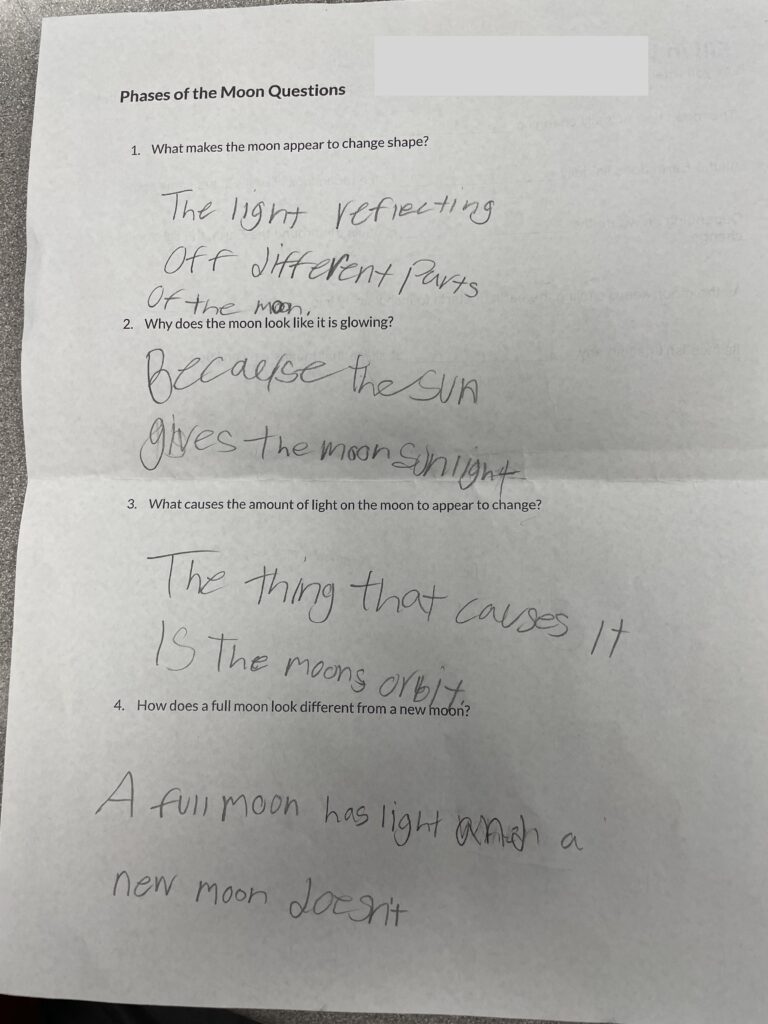 Phases of the Moon Questions
1. What makes the moon appear to change shape?
The light reflecting
Off different Parts
Of the moon.
2. Why does the moon look like it is glowing?
Because the sun
gives the moon sunlight
3. What causes the amount of light on the moon to appear to change?
The thing that causes It
IS The moons orbit.
4. How does a full moon look different from a new moon?
A full moon has light and a
new moon doesn't